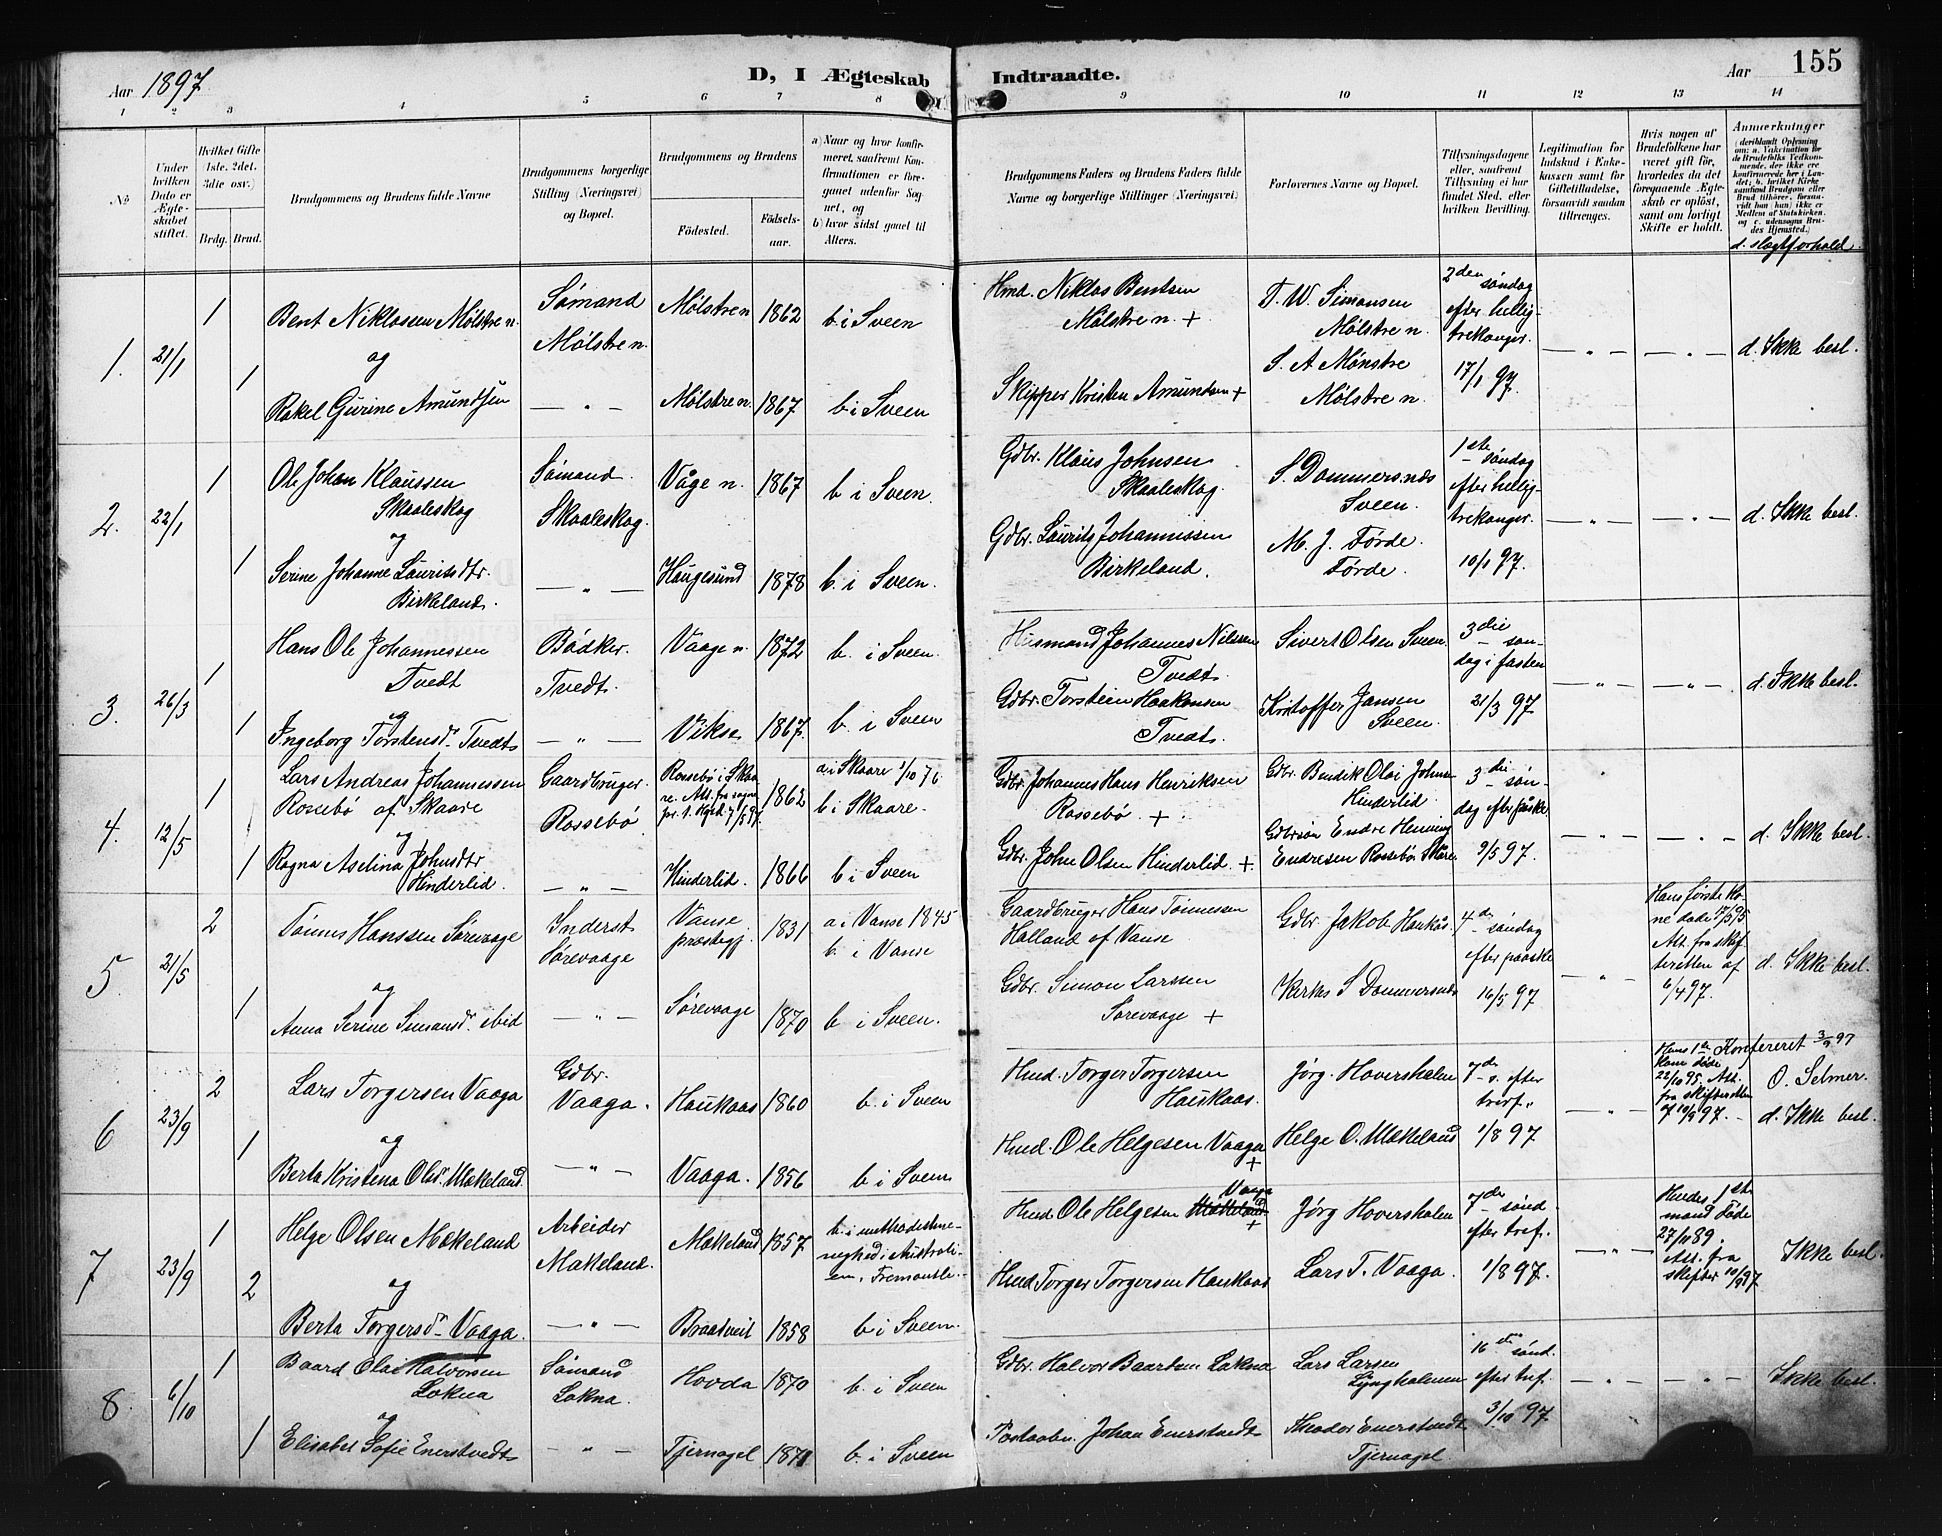 Aar 1897
D, I Ægteskab Indtraadte.
Aar 155
1 2 3 4 5 6 7 8 9 10 11 12 13 14
No
Under hvilken Dato er Ægteskabet stiftet.
Hvilket Gifte (1ste. 2det. 3die osv.)
Brdg. Brud.
Brudgommens og Brudens fulde Navne
Brudgommens borgerlige Stilling (Næringsvei) og Bopæl.
Brudgommens og Brudens
Fødested.
Fødselsaar.
a) Naar og hvor konfirmeret, saafremt Konfirmationen er foregaaet udenfor Sognet, og
b) hvor sidst gaaet til Alters.
Brudgommens Faders og Brudens Faders fulde Navne og borgerlige Stillinger (Næringsvei)
Forlovernes Navne og Bopæl.
Tillysningsdagene eller, saafremt Tillysning ei har fundet Sted, efter hvilken Bevilling.
Legitimation for Indskud i Enkekassen samt for Giftetilladelse, forsaavidt saadan tiltrænges.
Hvis nogen af Brudefolkene har været gift før, hvorledes da det foregaaende Ægteskab er opløst, samt om lovligt Skifte er holdt.
Anmærkninger
(deriblandt Oplysning om: a. Vakcination for de Brudefolks Vedkommende, der ikke ere konfirmerede her i Landet; b. hvilket Kirkesamfund Brudgom eller Brud tilhører, forsaavidt han (hun) ikke er Medlem af Statskirken, og c. udensogns Brudes Hjemsted.)
d. slægtforhold.
1. 21/1
1 Bent Niklassen Mølstre n. Sømand Mølstre n. Mølstre n 1862 b. i Sveen
og
1 Rakel Gurine Amundsen — " — Mølstre n. 1867 b. i Sveen
Hmd. Niklas Bentsen Mølstre n. +
Skipper Kristen Amundsen +
T. W. Simonsen Mølstre n.
S. A Mønstre Mølstre n.
2den søndag efter helligtrekonger. 17/1 97.
— " — — " — d. Ikke besl.
2. 22/1
1 Ole Johan Klaussen Skaaleskog Sømand. Skoaleskog. Våge n. 1867 b. i Sveen.
og
1 Serine Johanne Lauritsdtr. Birkeland. — " — Haugesund 1878 b. i Sveen.
Gdbr. Klaus Johnsen Skaaleskog.
Gdbr. Laurits Johannissen Birkeland.
S. Dommersnæs Sveen.
M. J. Førde. Førde.
1ste søndag efter helligtrekonger. 10/1 97.
— " — — " — d. Ikke besl.
3. 26/3
1 Hans Ole Johannessen Tvedt Bødker. Tvedt. Vaage n. 1872 b. i Sveen.
og
1 Ingeborg Torstensd. Tvedt — " — Vikse 1867. b. i Sveen
Husmand Johannes Nilssen Tvedt.
Gdbr. Torstein Haakonsen Tvedt.
Sivert Olsen Sveen
Kristoffer Jansen Sveen.
3die søndag i fasten 21/3 97.
— " — — " — d. Ikke besl.
4. 12/5
1 Lars Andreas Johannessen Rossebø af Skaare Gaardbruger. Rossebø Rossebø i Skaare. Att. fra sognepr. 7/5 97. 1862 a. i Skaare 1/10 76 b. i Skaare.
og
1 Ragna Aselina Johnsdtr Hinderlid. — " — Hinderlid. 1866 b. i Sveen
Gdbr. Johannes Hans Henriksen Rossebø. +
Gdbr. John Olsen Hinderlid. +
Gdbr. Bendik Olai Johnsen Hinderlid.
Gdbrsøn Endre Henning Endresen Rossebø Skåre
3die søndag efter påske 9/5 97.
— " — — " — d. Ikke besl.
5. 21/5
2 Tønnes Hanssen Sørevaage Inderst Sørevaage Vanse præstegj. 1831 a. i Vanse 1845 b. i Vanse
og
1 Anna Serine Simonsd. ibid — " — Sørevaage 1870 b. i Sveen.
Gaardbruger Hans Tønnessen Holland af Vanse
Gdbr. Simon Larssen Sørevaage +
Gdbr. Jakob Haukås.
Kirkes. S Dommersnæs
4de søndag efter paaske 16/5 97
— " — Hans første Kone døde 17/5 95 Att. fra skifteretten af 6/4 97. d. Ikke besl.
6 23/9
2 Lars Torgersen Vaaga Gdbr. Vaaga. Haukaas 1860 b. i Sveen
og
1 Berta Kristena Olsd. Mækeland. — " — Vaaga. 1856 b. i Sveen
Hmd. Torger Torgersen Haukaas.
Hmd. Ole Helgesen Vaaga +
Jørg. Hovershalm
Helge O. Mækeland
7de s. efter trif. 1/8 97
— " — Hans 1ste Kone døde 22/10 95. Att. fra skifteretten af 10/8 97. — Konfereret 3/9 97 O. Selmer. d. Ikke besl.
7 23/9
1 Helge Olsen Mækeland Arbeider Mækeland. Mækeland 1857 b. i methodistmenighed i Australien, Fremantle.
og
2 Berta Torgersd. Vaaga. — " — Braatveit 1858 b i Sveen.
Hmd. Ole Helgesen Mækeland Vaaga +
Hmd. Torger Torgersen Haukaas
Jørg Hovershalm
Lars T. Vaaga.
7de sønd. efter tref. 1/8 97.
— " — Hendes 1ste mand døde 27/11 89. Att. fra skifter 10/8 97. Ikke besl.
8. 6/10
1 Baard Olai Halvorsen Lokna Sømand Lokna. Hovda 1870 b. i Sveen
og
1 Elisabet Sofie Enerstvedt — " — Tjernagel 1871 b. i Sveen
Gdbr. Halvor Baardsen Lokna
Postaabn. Johan Enerstvedt
Lars Larsen Lyngholmen
Theodor Enerstvedt Tjernagel
16de sønd. efter tref. 3/10 97
— " — — " — Ikke besl.